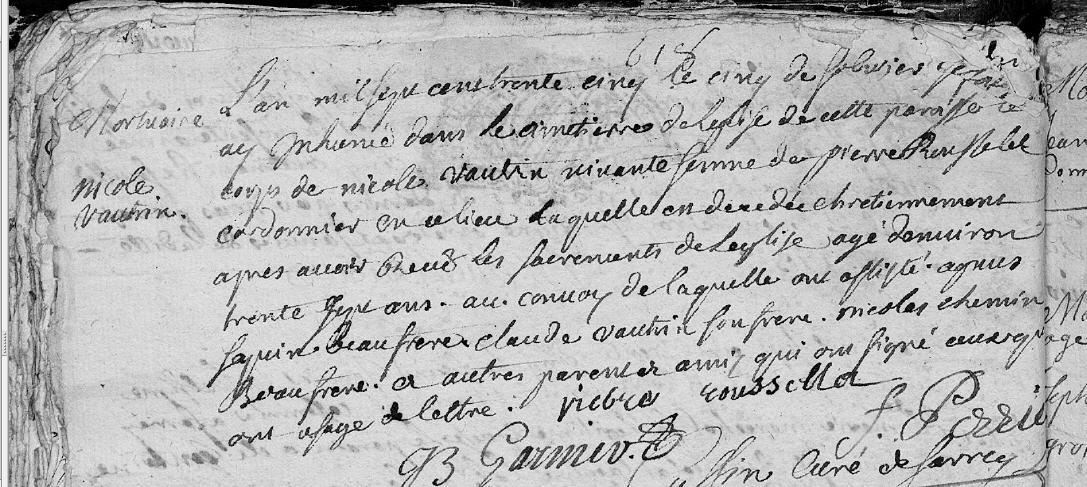 618
Mortuaire
nicole
vautrin.
L'an mil sept cens trente cinq le cinq de febvrier
ay Inhumé dans le cimetierre de leglise de cette paroisse le
corps de nicole vautrin vivante femme de pierre Rousselet
cordonnier en ce lieu laquelle en decedée chretiennement
apres avoir Receu les sacrements de leglise agé denviron
trente sept ans. au convoy de laquelle ont assisté. agnus
Beaufrere. claude vautrin son frere. nicolas chemin
Beaufrere. et autres parens et amis qui ont signé ceux qui
ont usage de lettre. pierre rousselet
f. Perri
JB Garnier.
curé de